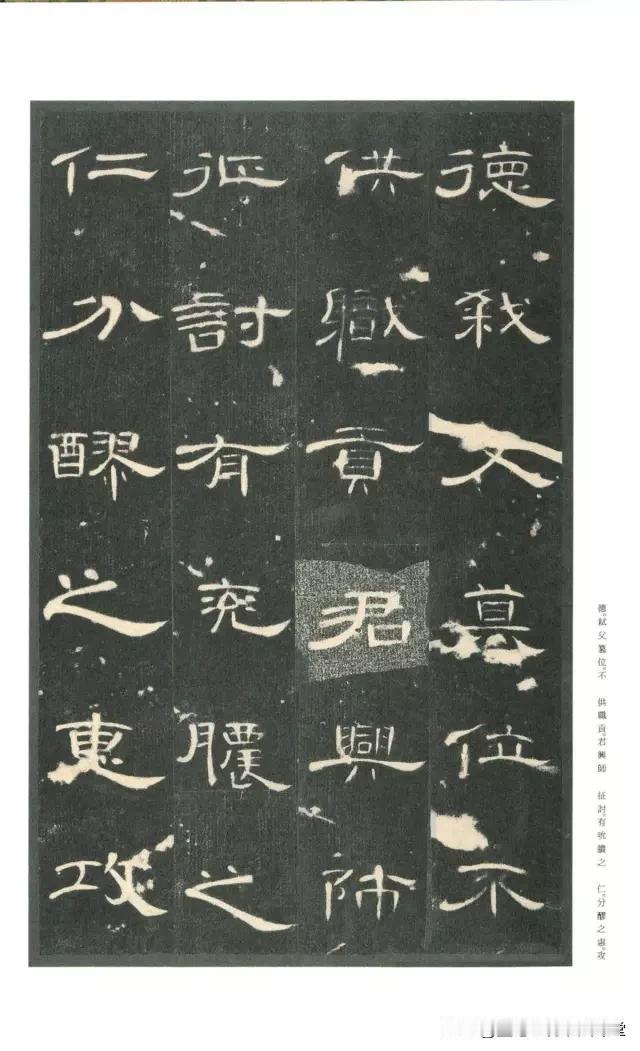 德弑父篡位不
供職貢君興師
征討有兖膿之
仁分醪之惠攻
德。弑父篡位。不 供職貢。君興師 征討。有吮膿之 仁。分醪之惠。攻